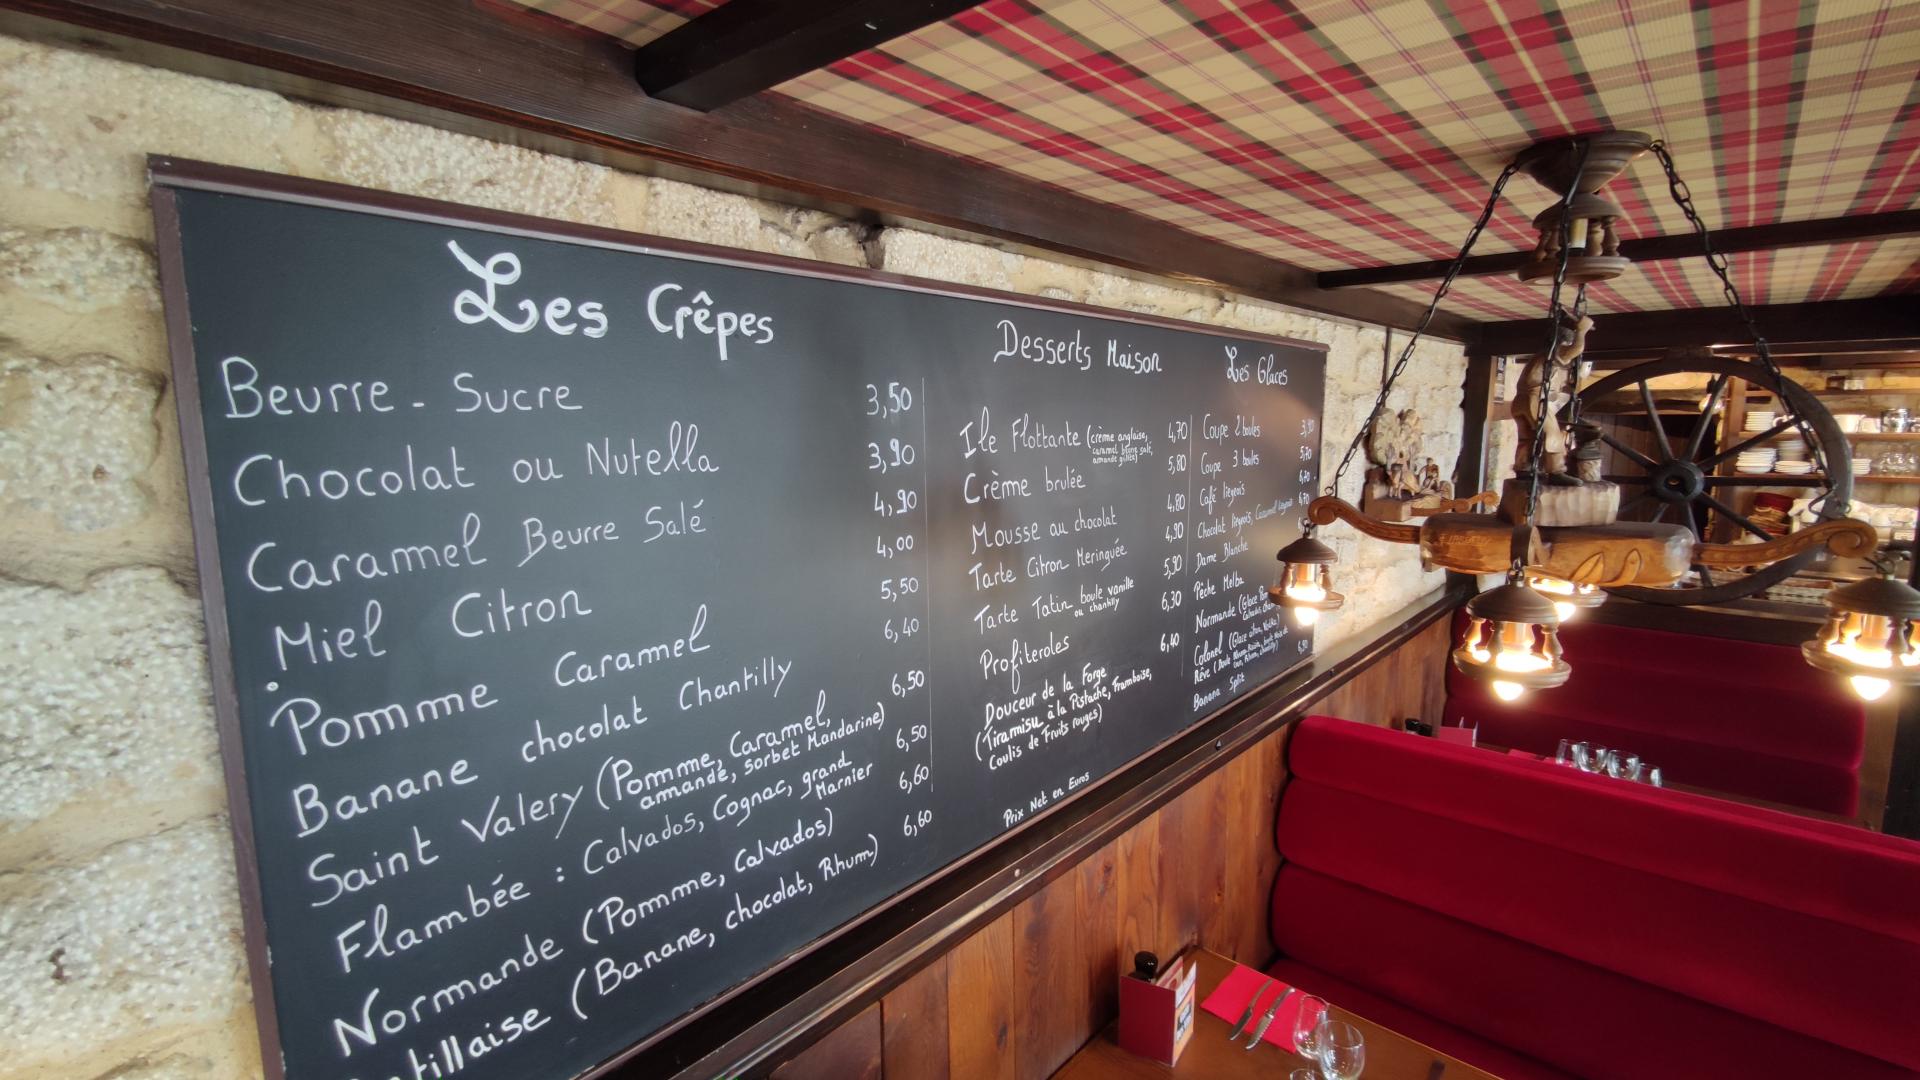 Les Crêpes
Beurre - Sucre 3,50
Chocolat ou Nutella 3,90
Caramel Beurre Salé 4,90
Miel Citron 4,00
Pomme Caramel 5,50
Banane chocolat Chantilly 6,40
Saint Valery (Pomme, Caramel, 6,50
amande, sorbet Mandarine)
Flambée : Calvados, Cognac, grand 6,50
Marnier
Normande (Pomme, Calvados) 6,60
tillaise (Banane, chocolat, Rhum) 6,60
Desserts Maison
Ile Flottante (crème anglaise, 4,70
caramel beurre salé,
amande grillée)
Crème brulée 5,80
Mousse au chocolat 4,80
Tarte Citron Meringuée 4,90
Tarte Tatin boule vanille 5,90
ou chantilly
Profiteroles 6,30
Douceur de la Forge 6,40
(Tiramisu à la Pistache, Framboise,
Coulis de Fruits rouges)
Prix Net en Euros
Les Glaces
Coupe 2 boules
Coupe 3 boules
Café liégeois
Chocolat liégeois, Caramel liégeois
Dame Blanche
Pêche Melba
Normande (Glace
Colonel (Glace citron, Vodka)
Rêve (Boule Rhum Raisin, boule Noix de
coco, Rhum, chantilly)
Banana Split